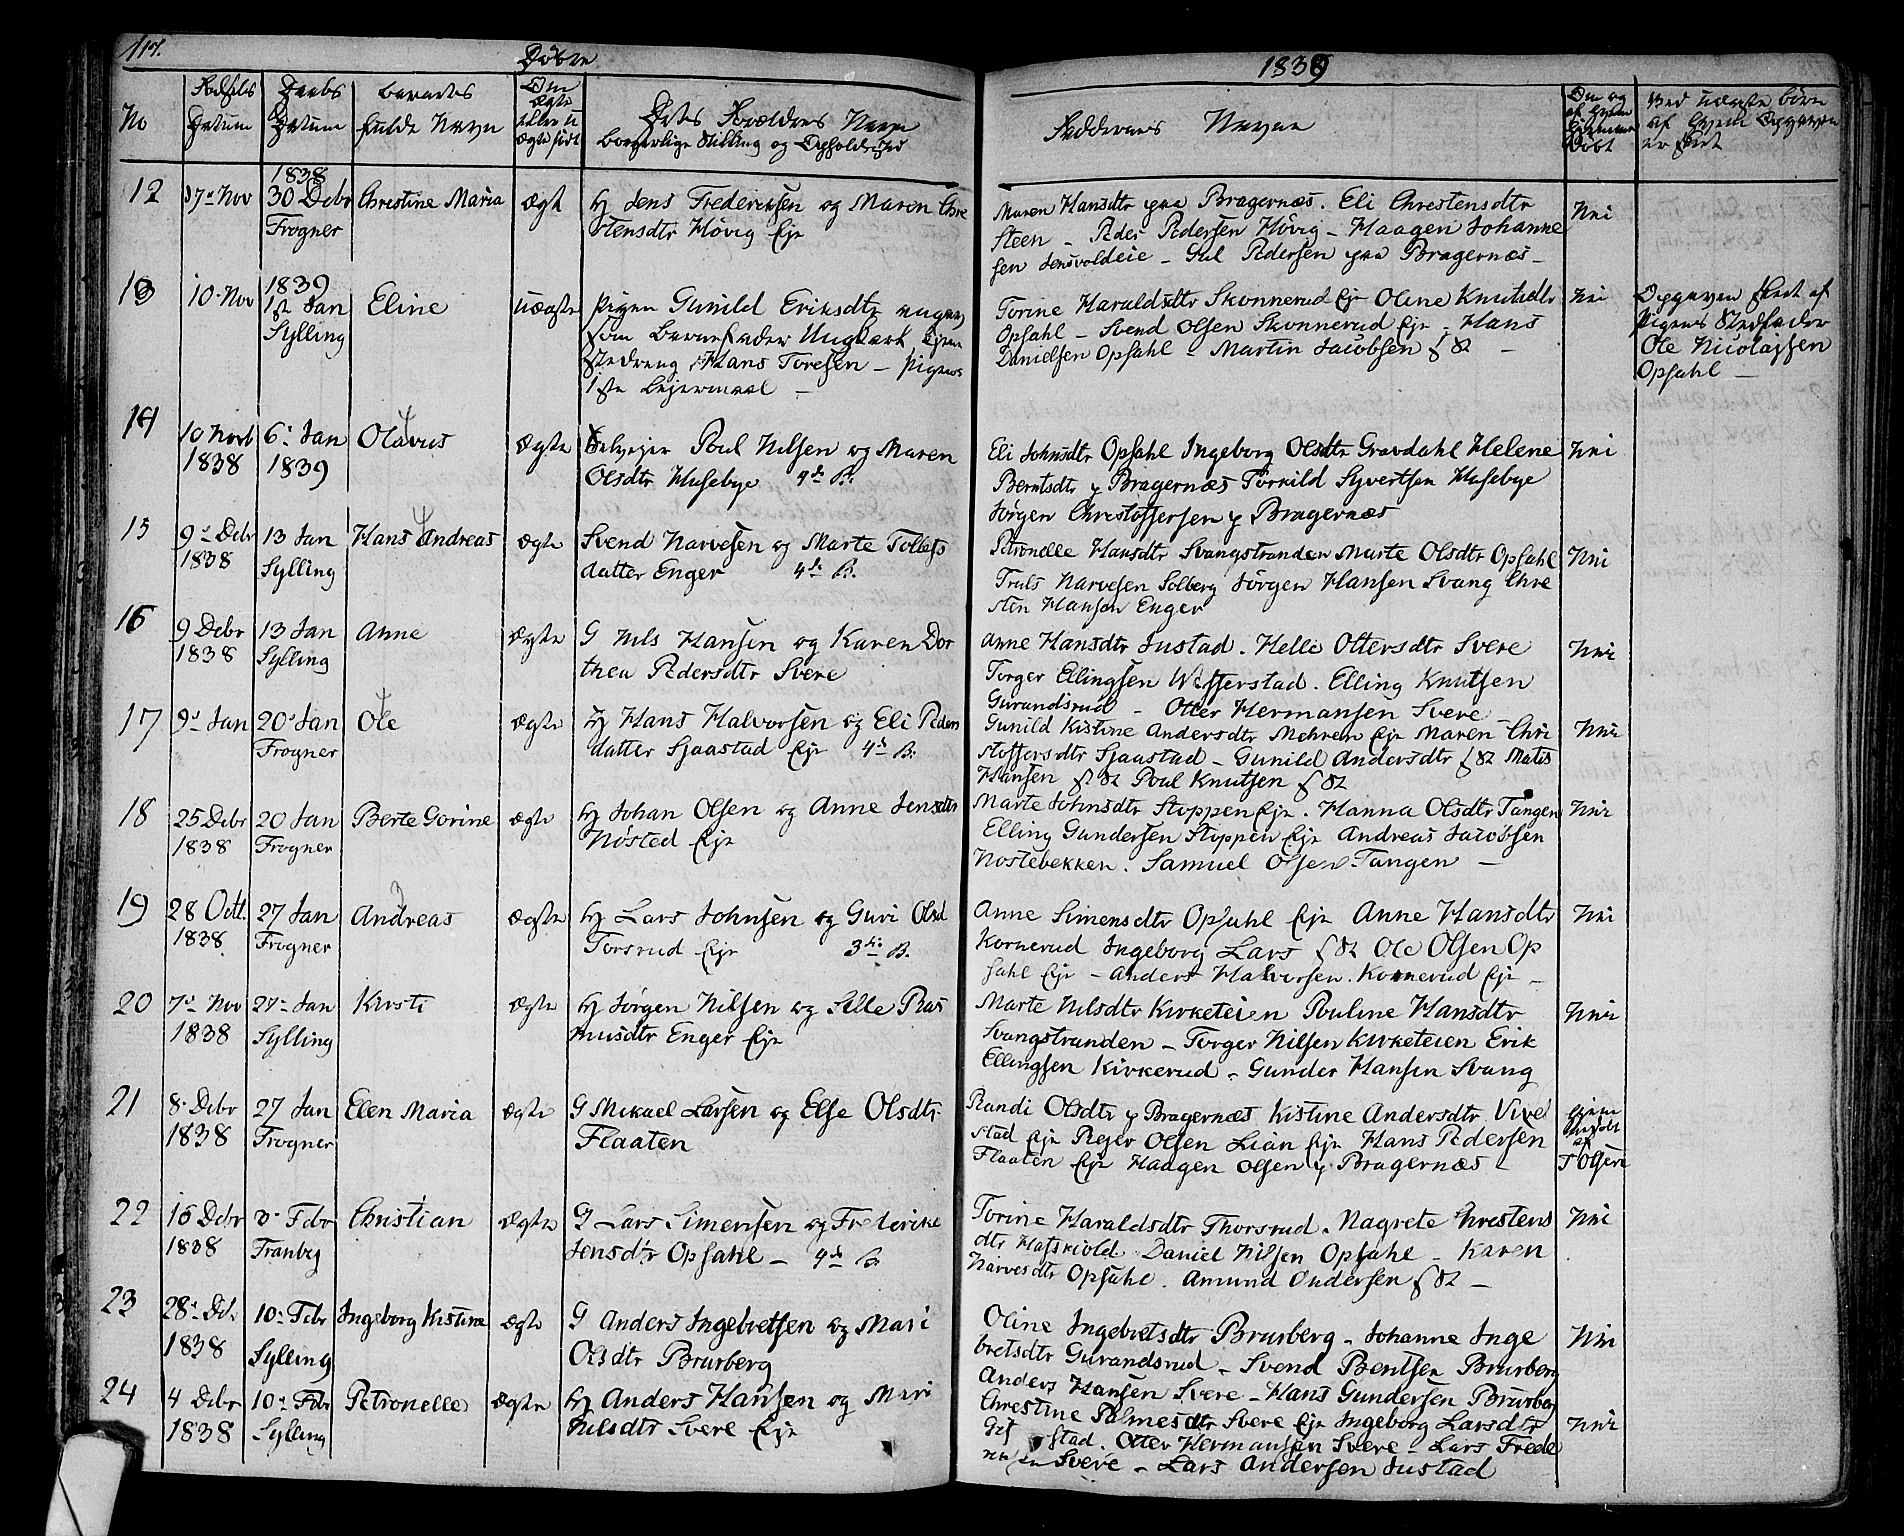 117.
Døbte
1839
No
Fødsels Datum
Daabs Datum
Barnets fulde Navn
Om Ægte eller u ægte født
Dets Forældres Navn
borgerlige Stilling og Opholdssted
Faddernes Navne
Om og af hvem hjemme Døbt
Ved uægte børn af hvem Opgaven er skeet
12
17de Nov
1838
30 Debr
Frogner
Christine Maria
ægt
Hj Jens Frederiksen og Maren Chre
stensdtr Høvig Eje
Maren Hansdtr paa Bragernæs. Eli Chrestensdtr
Steen - Peder Pedersen Høvig - Haagen Johanne
sen Jensvoldeie - Gul Pedersen paa Bragernæs -
Nei
13
10 Nov
1839
1ste Jan
Sylling
Eline
uægte
Pigen Gunild Eriksdtr angav
som Barnefader Ungkarl tjene
stedreng Hans Toresen - Pigens
1ste Lejermaal -
Torine Haraldsdtr Skonnerud Eje Oline Knutsdtr
Opsahl - Svend Olsen Skonnerud Eje - Hans
Danielsen Opsahl - Martin Jacobsen
Nei
Opgaven skeet af
Pigens Stedfader
Ole Nicolaysen
Opsahl -
14
10 Novb
1838
6 Jan
1839
Olavus
4
ægte
Selvejer Poul Nilsen og Maren
Olsdtr Husebye 4de B.
Eli Johnsdtr Opsahl Ingeborg Olsdtr Gravdahl Helene
Berntsdtr p Bragernæs Torkild Syvertsen Husebye
Jørgen Christoffersen p Bragernæs
Nei
15
9de Debr
1838
13 Jan
Sylling
Hans Andreas
4
ægte
Svend Narvesen og Marte Tollefs
datter Enger 4de B.
Petronelle Hansdtr Svangstranden Marte Olsdtr Opsahl
Truls Narvesen Solberg Jørgen Hansen Svang Chre
sten Hansen Enger
Nei
16
9 Debr
1838
13 Jan
Sylling
Anne
ægte
G Nils Hansen og Karen Dor
thea Pedersdtr Svere
Anne Hansdtr Justad. Helle Ottersdtr Svere
Torger Ellingsen Wefferstad. Elling Knutsen
Gurandsrud - Otter Hermansen Svere -
Nei
17
9de Jan
20de Jan
Frogner
Ole
4
ægte
Hj Hans Halvorsen og Eli Peders
datter Sjaastad Eje 4de B.
Gunild Kistine Andersdtr Mehren Eje Maren Chri
stoffersdtr Sjaastad - Gunild Andersdtr Matis
Hansen Poul Knutsen
Nei
18
25 Debr
1838
20 Jan
Frogner
Berte Gorine
ægte
Hj Johan Olsen og Anne Jensdtr
Nøsted Eje
Marte Johnsdtr Stoppen Eje. Hanna Olsdtr Tangen
Elling Gundersen Stoppen Eje Andreas Jacobsen
Nostebekken. Samuel Olsen Tangen -
Nei
19
28 Octt.
1838
27 Jan
Frogner
Andreas
3
ægte
Hj Lars Johnsen og Guri Olsd
Torsrud Eje 3die B.
Anne Simensdtr Opsahl Eje Anne Hansdtr
Kornerud Ingeborg Lars Ole Olsen Op
sahl Eje - Anders Halvorsen. Kornerud Eje -
Nei
20
7de Nov
1838
27de Jan
Sylling
Kirsti
ægte
Hj Jørgen Nilsen og Sille Ras
musdtr Enger Eje
Marte Nilsdtr Kirketeien Pauline Hansdtr
Svangstranden - Torger Nilsen Kirketeien Erik
Ellingsen Kirkerud - Gunder Hansen Svang
Nei
21
8 Debr
1838
27 Jan
Frogner
Elen Maria
ægte
G Mikael Larsen og Else Olsdtr
Flaaten
Randi Olsdtr p Bragernæs Kistine Andersdtr Vivel
stad Eje Peder Olsen Lian Eje Hans Pedersen
Flaaten Eje Haagen Olsen p Bragernæs -
hjem
døbt
af
T Olsen
22
15 Debr
1838
3 Febr
Tranbyg
Christian
ægte
G Lars Simensen og Frederike
Jensdtr Opsahl - 4de B
Torine Haraldsdtr Thorsrud. Magrete Chrestens
dtr Hafskiold Daniel Nilsen Opsahl - Karen
Narvesdtr Opsahl. Amund Andersen -
Nei
23
28de Deb
1838
10de Febr
Sylling
Ingeborg Kistine
ægte
G Anders Ingebretsen og Mari
Olsdtr Brurberg
Oline Ingebretsdtr Brurberg - Johanne Inge
bretsdtr Gurandsrud - Svend Bentsen Brurberg
Anders Hansen Svere - Hans Gundersen Brurberg
Nei
24
4 Debr
1838
10de Febr
Sylling
Petronelle
ægte
Hj Anders Hansen og Mari
Nilsdtr Svere Eje
Chrestine Palmesdtr Svere Eje Ingeborg Larsdtr
Gif stad. Otter Hermansen Svere - Lars Frede
Svere - Lars Andersen Justad
Nei